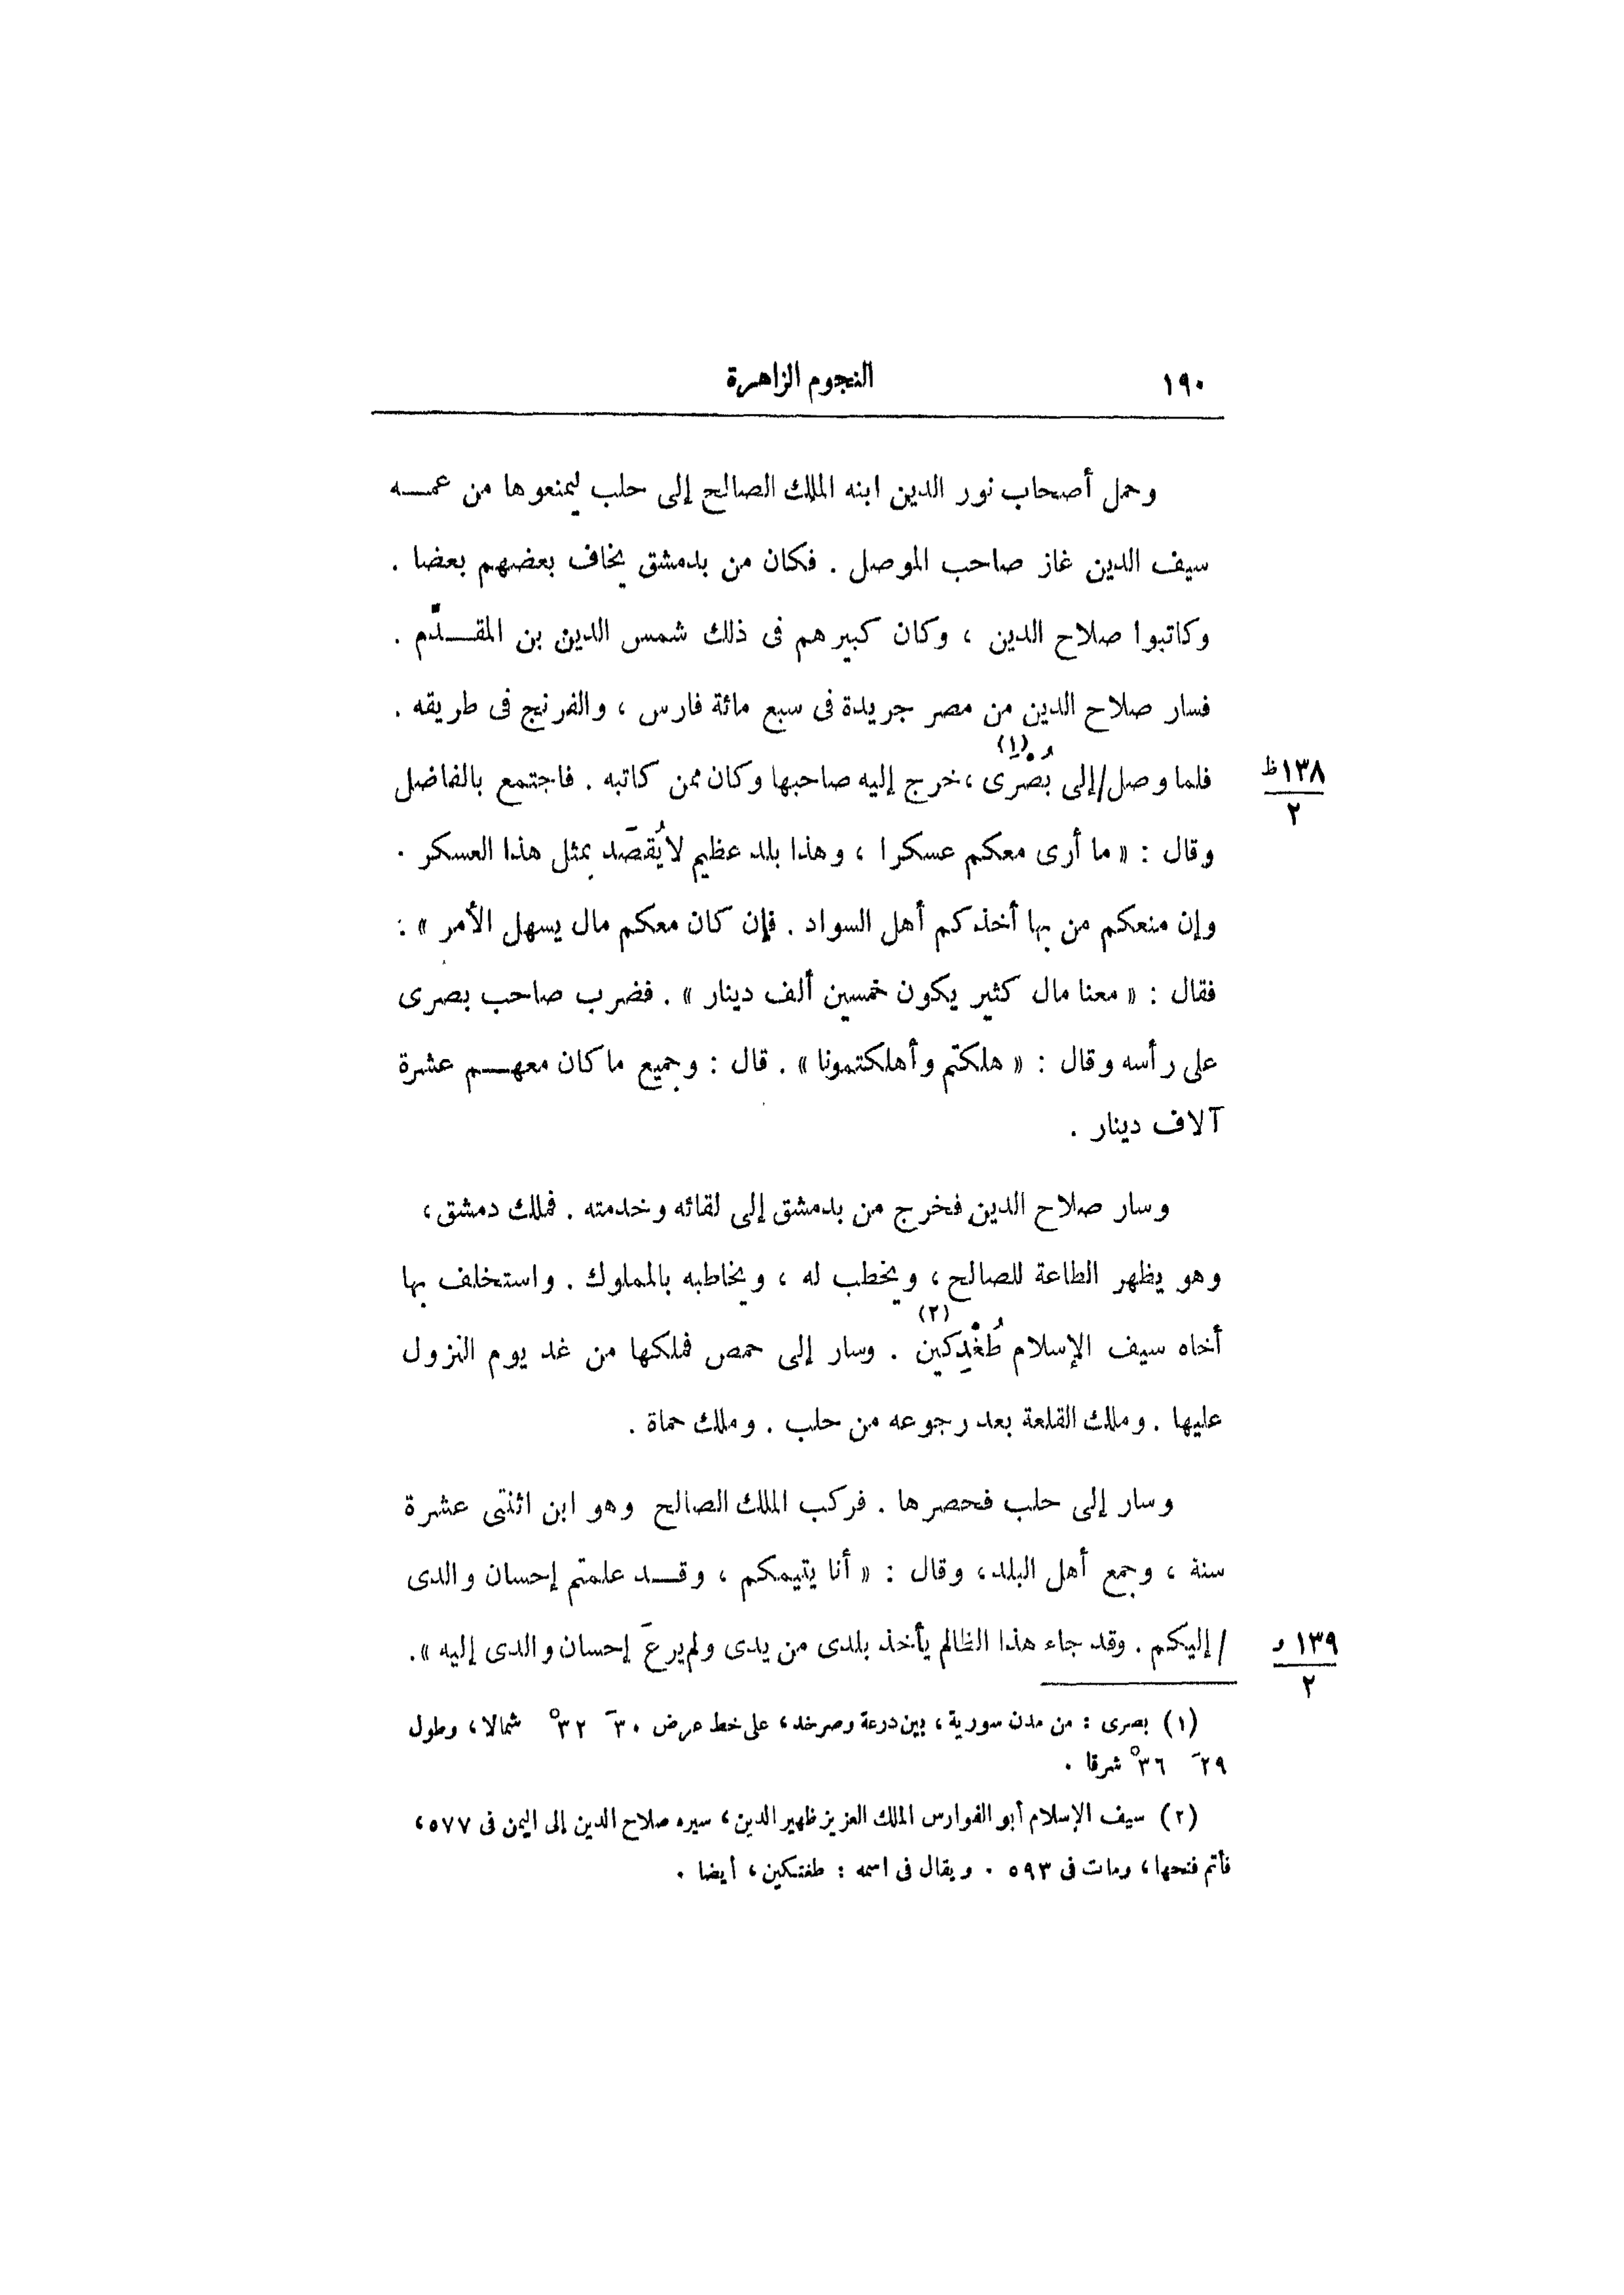 ١٩٠
النجوم الزاهرة
وحمل أصحاب نور الدين ابنه الملك الصالح إلى حلب ليمنعوها من عمه
سيف الدين غاز صاحب الموصل . فكان من بدمشق يخاف بعضهم بعضا .
وكاتبوا صلاح الدين ، وكان كبيرهم فى ذلك شمس الدين بن المقدّم .
فسار صلاح الدين من مصر جريدة فى سبع مائة فارس ، والفرنج فى طريقه .
فلما وصل/إلى بُصْرى (١) ،خرج إليه صاحبها وكان ممن كاتبه . فاجتمع بالفاضل
١٣٨ظ
٢
وقال : « ما أرى معكم عسكرا ، وهذا بلد عظيم لايُقصَد بمثل هذا العسكر .
وإن منعكم من بها أخذكم أهل السواد . فإن كان معكم مال يسهل الأمر » :
فقال : « معنا مال كثير يكون خمسين ألف دينار » . فضرب صاحب بصرى
على رأسه وقال : « هلكتم وأهلكتمونا » . قال : وجميع ماكان معهم عشرة
آلاف دينار .
وسار صلاح الدين فخرج من بدمشق إلى لقائه وخدمته . فملك دمشق ،
وهو يظهر الطاعة للصالح ، ويخطب له ، ويخاطبه بالمملوك . واستخلف بها
أخاه سيف الإسلام طُغْدِكين (٢) . وسار إلى حمص فملكها من غد يوم النزول
عليها . وملك القلعة بعد رجوعه من حلب . وملك حماة .
وسار إلى حلب فحصرها . فركب الملك الصالح وهو ابن اثنتى عشرة
سنة ، وجمع أهل البلد ، وقال : « أنا يتيمكم ، وقد علمتم إحسان والدى
/ إليكم . وقد جاء هذا الظالم يأخذ بلدى من يدى ولم يرعَ إحسان والدى إليه » .
١٣٩ و
٢
(١) بصرى : من مدن سورية ، بين درعة وصرخد ، على خط عرض ٣٠َ ٣٢° شمالا ، وطول
٢٩َ ٣٦° شرقا .
(٢) سيف الإسلام أبو الفوارس الملك العزيز ظهير الدين ، سيره صلاح الدين إلى اليمن فى ٥٧٧ ،
فأتم فتحها ، ومات فى ٥٩٣ . ويقال فى اسمه : طغتكين ، أيضا .